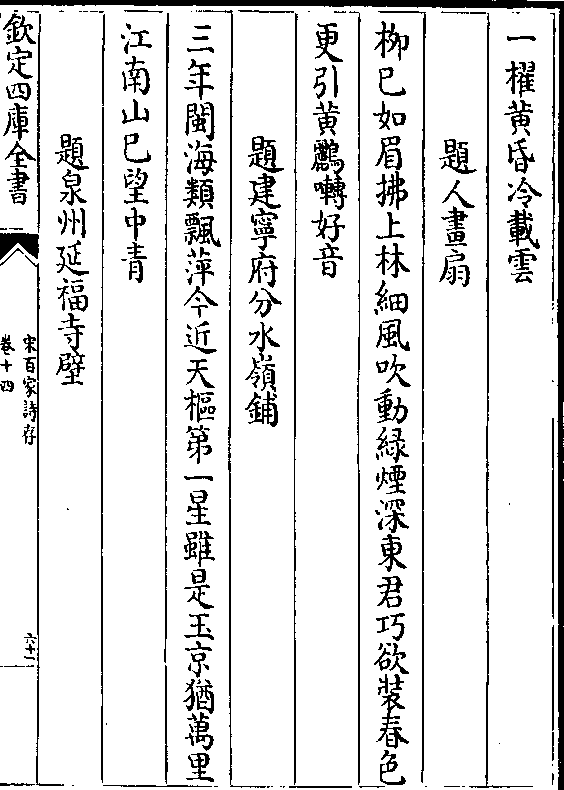 一櫂黄昏冷載雲
題人畫扇
柳已如眉拂上林細風吹動緑煙深東君巧欲装春色
更引黄鸝囀好音
題建寧府分水嶺鋪
三年閩海類飄萍今近天樞第一星雖是玉京猶萬里
江南山已望中青
題泉州延福寺壁
欽定四庫全書
宋百家詩存
卷十四
六十一